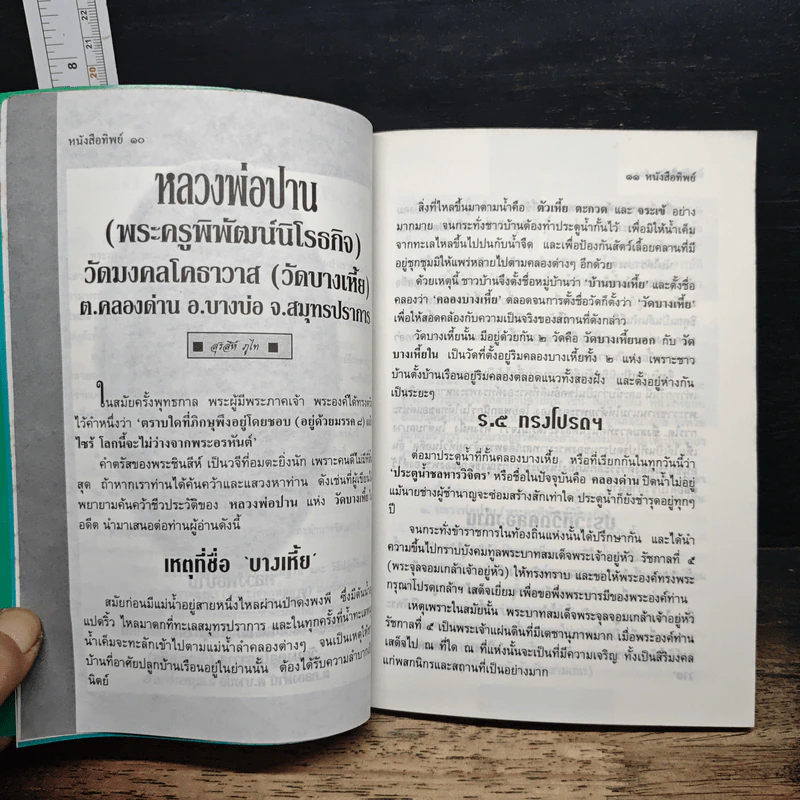 8
22
21
20
หนังสือทิพย์ ๑๐
หลวงพ่อปาน
(พระครูพิพัฒน์นิโรธกิจ)
วัดมงคลโคธาวาส (วัดบางเหี้ย)
ต.คลองด่าน อ.บางบ่อ จ.สมุทรปราการ
สุรสีห์ ภูไท
ในสมัยครั้งพุทธกาล พระผู้มีพระภาคเจ้า พระองค์ได้ทรงตรัส
ไว้คำหนึ่งว่า 'ตราบใดที่ภิกษุพึงอยู่โดยชอบ (อยู่ด้วยมรรค ๘)
ไซร้ โลกนี้จะไม่ว่างจากพระอรหันต์'
คำตรัสของพระชินสีห์ เป็นวจีที่อมตะยิ่งนัก เพราะคนดีไม่มีที่
สุด ถ้าหากเราท่านได้ค้นคว้าและแสวงหาท่าน ดังเช่นที่ผู้เขียน
พยายามค้นคว้าชีวประวัติของ หลวงพ่อปาน แห่ง วัดบางเหี้ย
อดีต นำมาเสนอต่อท่านผู้อ่านดังนี้
เหตุที่ชื่อ 'บางเหี้ย'
สมัยก่อนมีแม่น้ำอยู่สายหนึ่งไหลผ่านป่าดงพงพี ซึ่งมีต้นน้ำ
แปดริ้ว ไหลมาตกที่ทะเลสมุทรปราการ และในทุกครั้งที่น้ำทะเล
น้ำเค็มจะทะลักเข้าไปตามแม่น้ำลำคลองต่างๆ จนเป็นเหตุให้
บ้านที่อาศัยปลูกบ้านเรือนอยู่ในย่านนั้น ต้องได้รับความลำบาก
นิตย์
๑๑ หนังสือทิพย์
สิ่งที่ไหลขึ้นมาตามน้ำคือ ตัวเหี้ย ตะกวด และ จระเข้ อย่าง
มากมาย จนกระทั่งชาวบ้านต้องทำประตูน้ำกั้นไว้ เพื่อมิให้น้ำเค็ม
จากทะเลไหลขึ้นไปปนกับน้ำจืด และเพื่อป้องกันสัตว์เลื้อยคลานที่มี
อยู่ชุกชุมมิให้แพร่หลายไปตามคลองต่างๆ อีกด้วย
ด้วยเหตุนี้ ชาวบ้านจึงตั้งชื่อหมู่บ้านว่า 'บ้านบางเหี้ย' และตั้งชื่อ
คลองว่า 'คลองบางเหี้ย' ตลอดจนการตั้งชื่อวัดก็ตั้งว่า 'วัดบางเหี้ย'
เพื่อให้สอดคล้องกับความเป็นจริงของสถานที่ดังกล่าว
วัดบางเหี้ยนั้น มีอยู่ด้วยกัน ๒ วัดคือ วัดบางเหี้ยนอก กับ วัด
บางเหี้ยใน เป็นวัดที่ตั้งอยู่ริมคลองบางเหี้ยทั้ง ๒ แห่ง เพราะชาว
บ้านตั้งบ้านเรือนอยู่ริมคลองตลอดแนวทั้งสองฝั่ง และตั้งอยู่ห่างกัน
เป็นระยะๆ
ร.๕ ทรงโปรดฯ
ต่อมาประตูน้ำที่กั้นคลองบางเหี้ย หรือที่เรียกกันในทุกวันนี้ว่า
'ประตูน้ำชลหารวิจิตร' หรือชื่อในปัจจุบันคือ คลองด่าน ปิดน้ำไม่อยู่
แม้นายช่างผู้ชำนาญจะซ่อมสร้างสักเท่าใด ประตูน้ำก็ยังชำรุดอยู่ทุกๆ
ปี
จนกระทั่งข้าราชการในท้องถิ่นแห่งนั้นได้ปรึกษากัน และได้นำ
ความขึ้นไปกราบบังคมทูลพระบาทสมเด็จพระเจ้าอยู่หัว รัชกาลที่ ๕
(พระจุลจอมเกล้าเจ้าอยู่หัว) ให้ทรงทราบ และขอให้พระองค์ทรงพระ
กรุณาโปรดเกล้าฯ เสด็จเยี่ยม เพื่อขอพึ่งพระบารมีของพระองค์ท่าน
เหตุเพราะในสมัยนั้น พระบาทสมเด็จพระจุลจอมเกล้าเจ้าอยู่หัว
รัชกาลที่ ๕ เป็นพระเจ้าแผ่นดินที่มีเดชานุภาพมาก เมื่อพระองค์ท่าน
เสด็จไป ณ ที่ใด ณ ที่แห่งนั้นจะเป็นที่มีความเจริญ ทั้งเป็นสิริมงคล
แก่พสกนิกรและสถานที่เป็นอย่างมาก